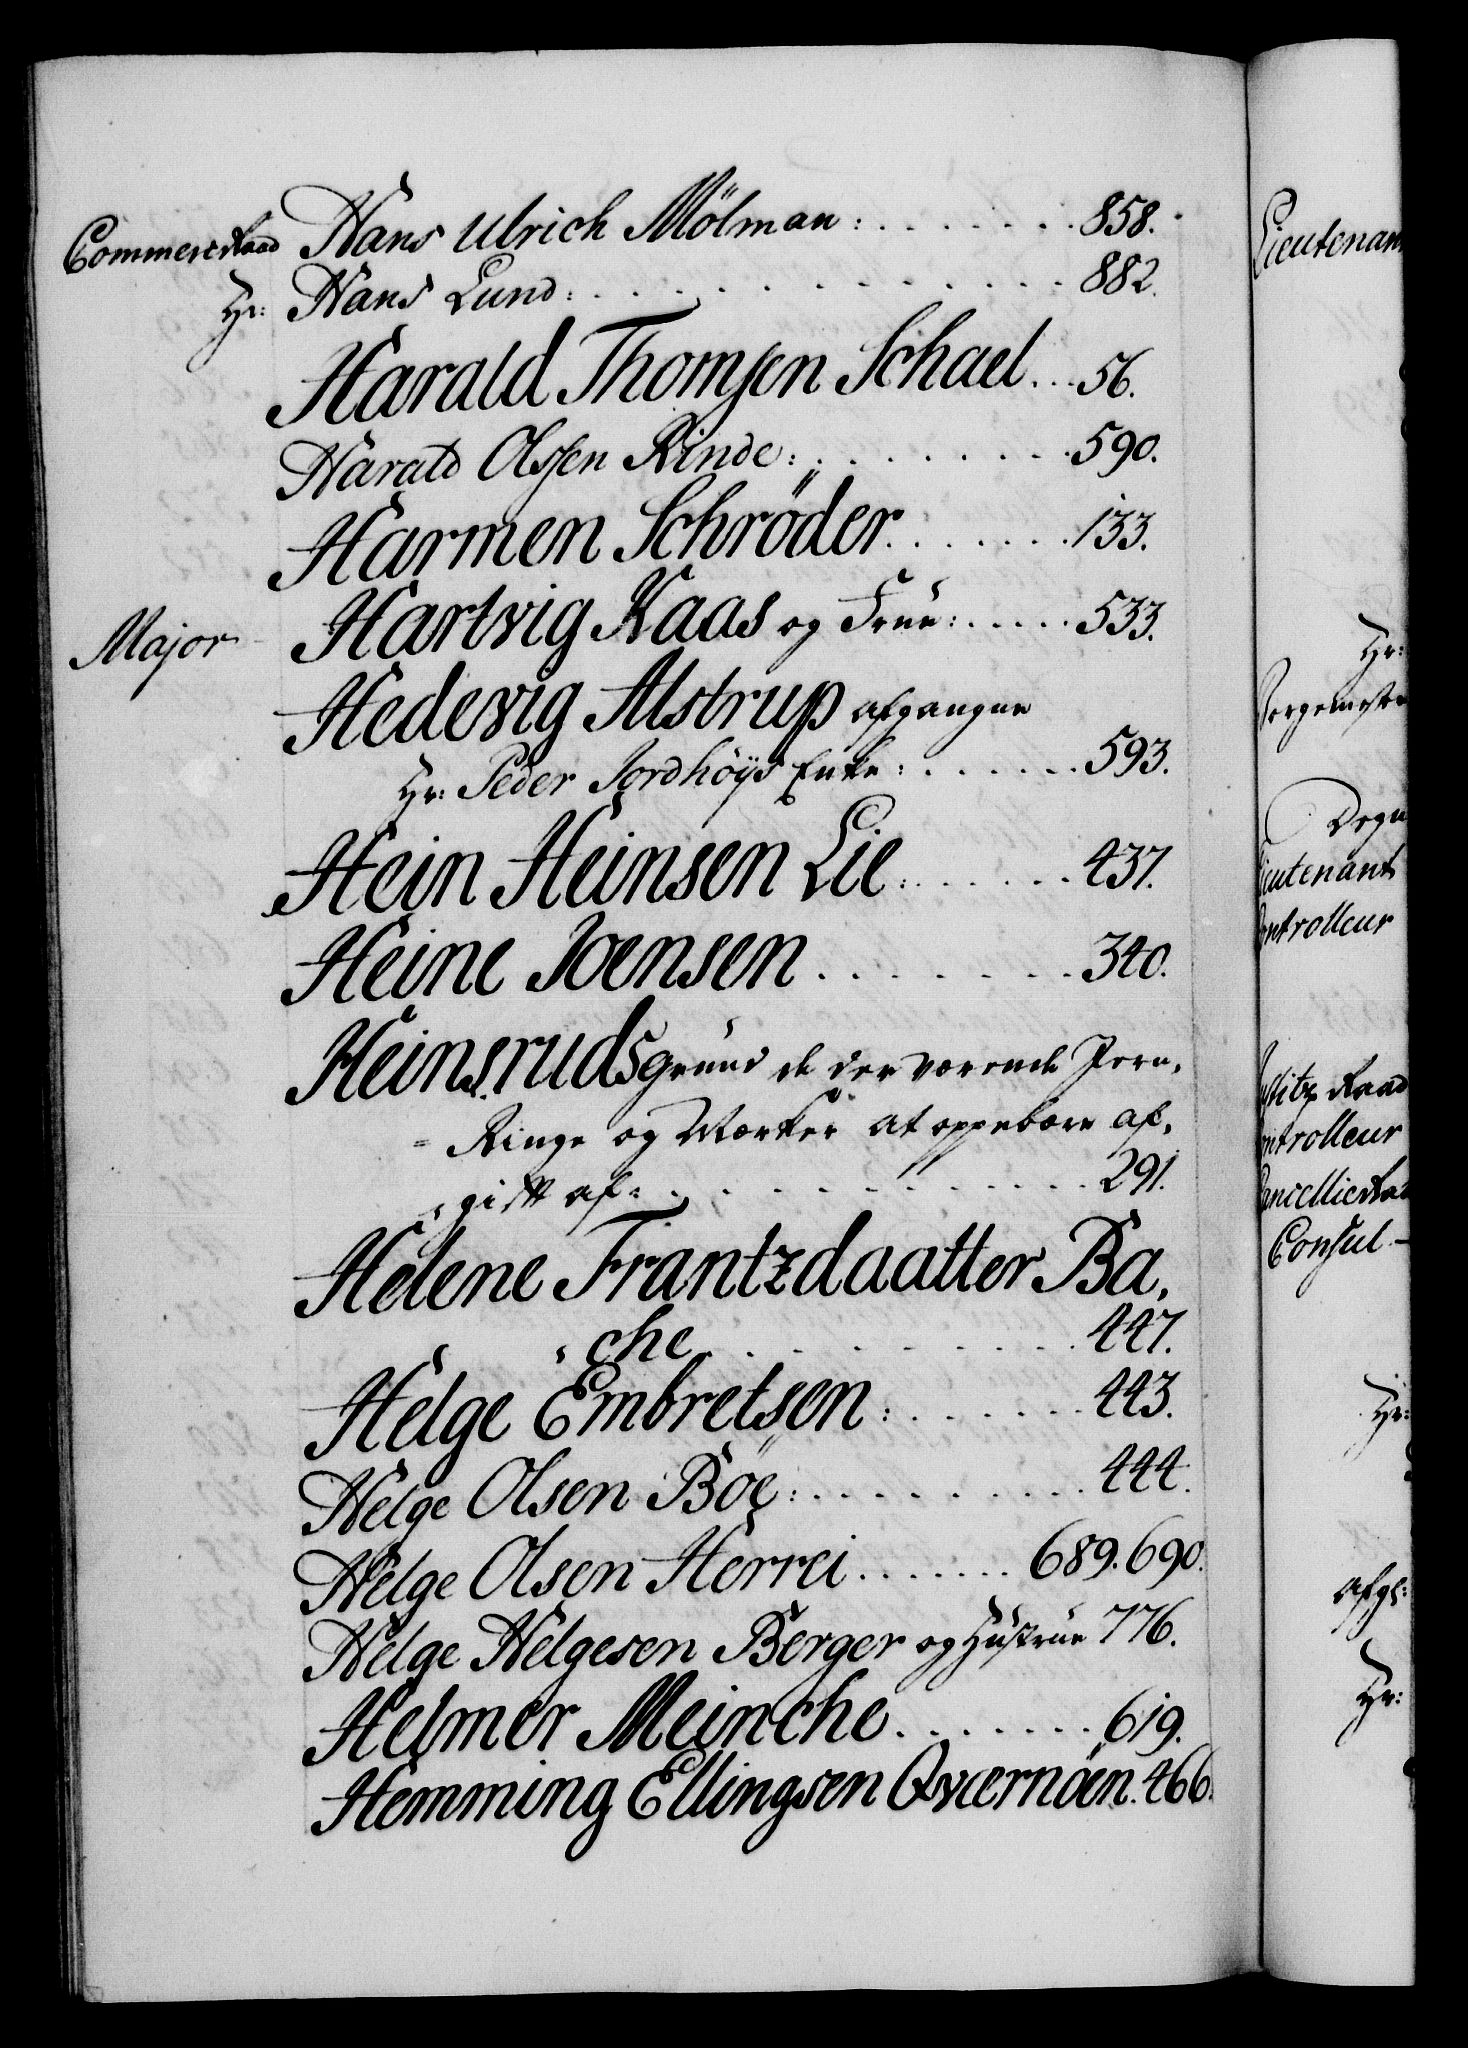 CommerceRaad Hans Ulrich Mölman: . . . . . . . 858.
Hr: Hans Lund: . . . . . . . . . . . . 882.
Harald Thomsen Schael . . . 56.
Harald Olssen Rinde: . . . . . . . . 590.
Harmen Schröder . . . . . . . 133.
Major Hartvig Kaas og Frue: . . . . . 533.
Hedevig Alstrup afgangne
Hr: Peder Jordhöÿs Enke: . . . . . . 593.
Hein Heinsen Lie: . . . . . . 437.
Heine Joensen . . . . . . . 340.
Heinsrudsgrund de der værende Jern,
= Ringe og Værker at oppebære af,
, gift af: . . . . . . . . . . . 291.
Helene Frantzdaatter Ba,
, che . . . . . . . . . . 447.
Helge Embretsen: . . . . . . . 443.
Helge Olsen Böe: . . . . . . . . . . 444.
Helge Olsen Herrei . . . . . . . 689. 690.
Helge Helgesen Berger og Hustrue 776.
Helmer Meinche . . . . . . . 619.
Hemming Ellingsen Qværnöen. 466.
Lieutenan
Hr:
Degn
Lieutenant
Controlleur
Justitz Raad
Controlleur
CancellieRaa
Consul –
Hr:
afgl:
Hr: